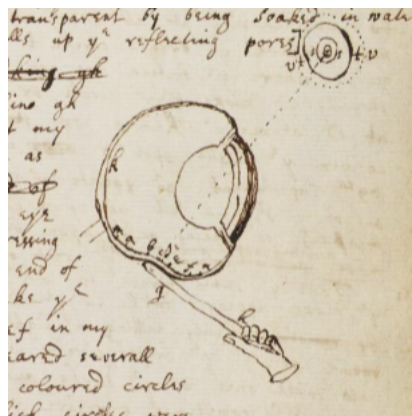 transparent by being soaked in wate
lls up yᵉ reflecting pores
king gh
ine gh
t my
as
of
eye
essing
end of
ke yᵉ
lf in my
eared severall
coloured circles
circles were